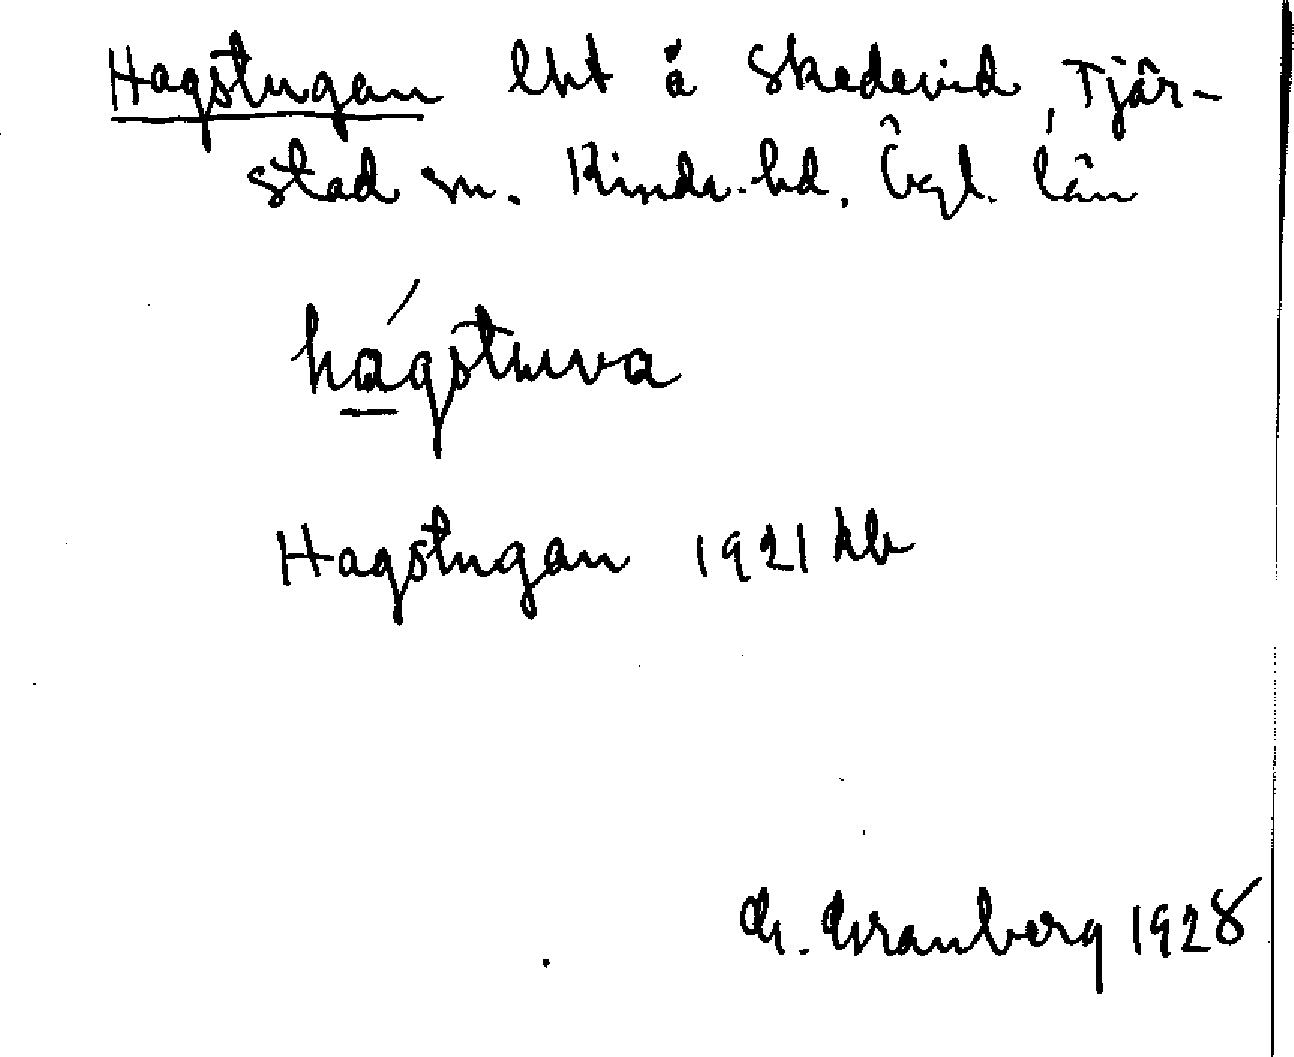 Hagstugan lht å Skedevid, Tjär-
stad sn. Kinda hd. Ögl. län
hágstuva
Hagstugan 1921 hb
G. Granberg 1928